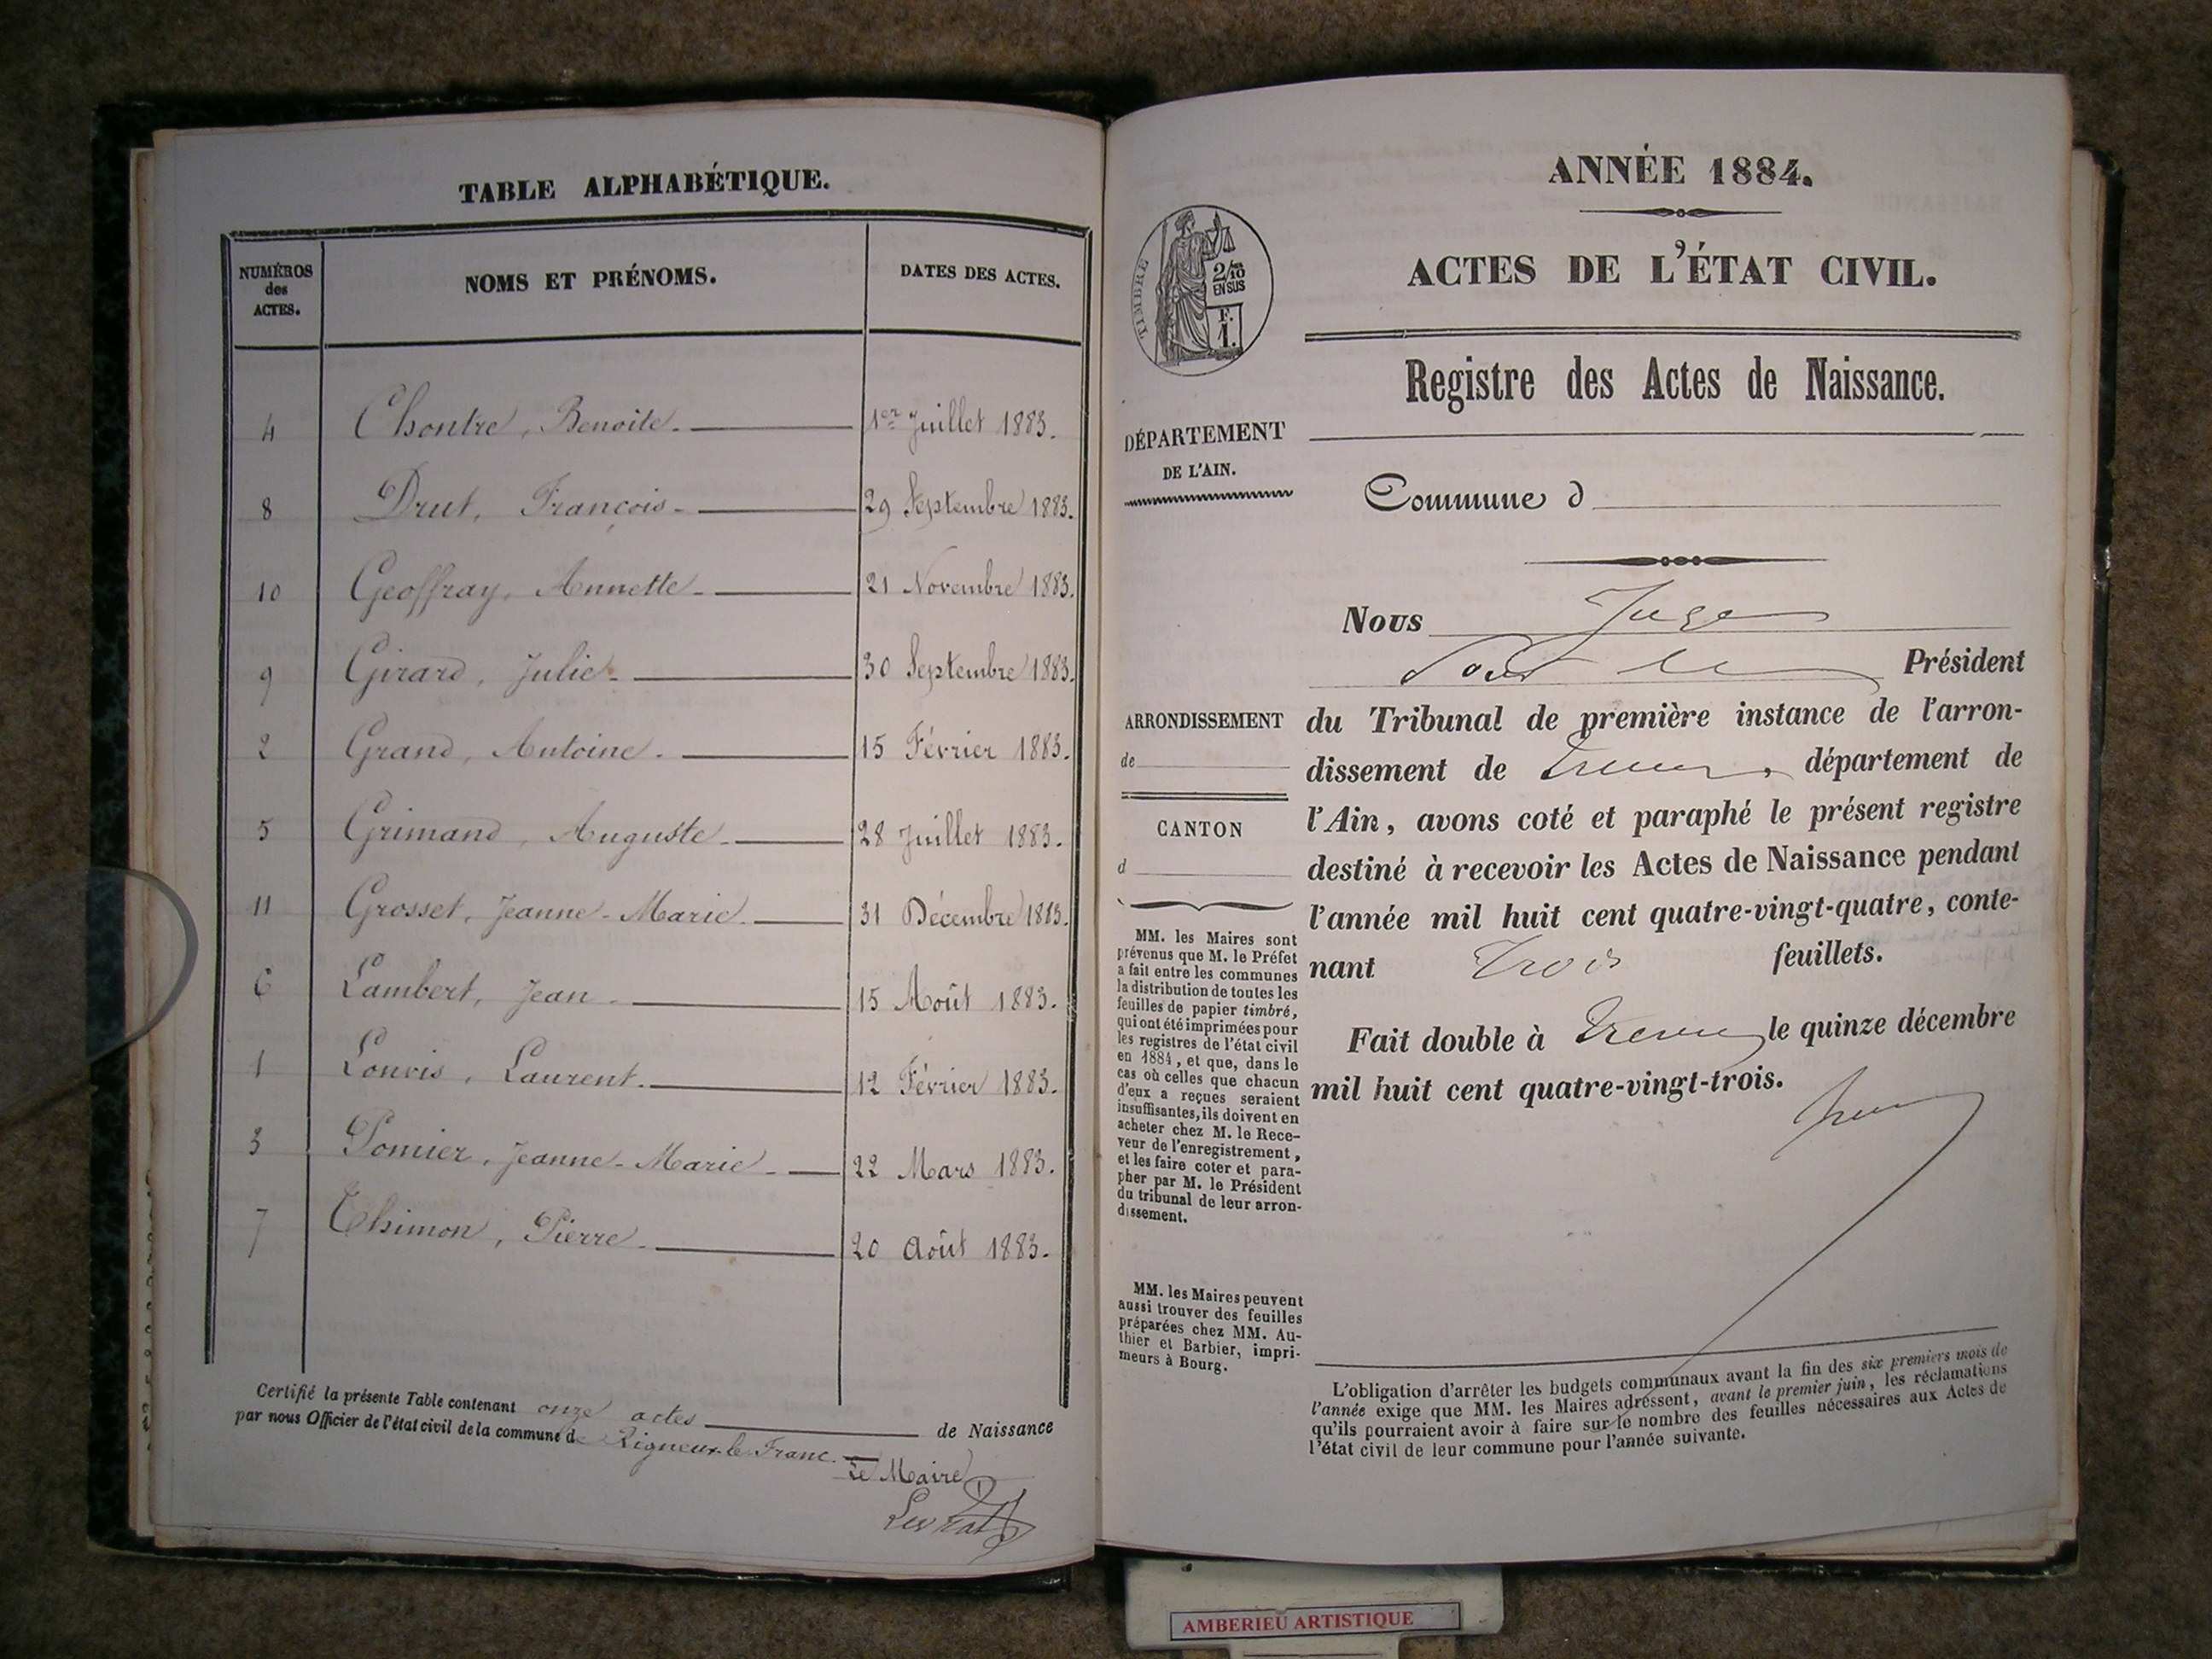 TABLE ALPHABÉTIQUE.
NUMÉROS des ACTES. NOMS ET PRÉNOMS. DATES DES ACTES.
4 Chontre, Benoite. 1er Juillet 1883.
8 Drut, François. 29 Septembre 1883.
10 Geoffray, Annette. 21 Novembre 1883.
9 Girard, Julie. 30 Septembre 1883.
2 Grand, Antoine. 15 Février 1883.
5 Grimand, Auguste. 28 Juillet 1883.
11 Grosset, Jeanne-Marie. 31 Décembre 1883.
6 Lambert, Jean. 15 Août 1883.
1 Louvis, Laurent. 12 Février 1883.
3 Pomier, Jeanne-Marie. 22 Mars 1883.
7 Thimon, Pierre. 20 Août 1883.
Certifié la présente Table contenant onze actes de Naissance
par nous Officier de l'état civil de la commune de Rigneux-le-Franc.
Le Maire
Levrat
ANNÉE 1884.
ACTES DE L'ÉTAT CIVIL.
Registre des Actes de Naissance.
TIMBRE
2/10 EN SUS
F. 1.
DÉPARTEMENT
DE L'AIN.
Commune d
ARRONDISSEMENT
de
CANTON
d
MM. les Maires sont
prévenus que M. le Préfet
a fait entre les communes
la distribution de toutes les
feuilles de papier timbré,
qui ont été imprimées pour
les registres de l'état civil
en 1884, et que, dans le
cas où celles que chacun
d'eux a reçues seraient
insuffisantes, ils doivent en
acheter chez M. le Rece-
veur de l'enregistrement,
et les faire coter et para-
pher par M. le Président
du tribunal de leur arron-
dissement.
MM. les Maires peuvent
aussi trouver des feuilles
préparées chez MM. Au-
thier et Barbier, impri-
meurs à Bourg.
Nous Juge
Pour le Président
du Tribunal de première instance de l'arron-
dissement de Trevoux, département de
l'Ain, avons coté et paraphé le présent registre
destiné à recevoir les Actes de Naissance pendant
l'année mil huit cent quatre-vingt-quatre, conte-
nant Trois feuillets.
Fait double à Trevoux le quinze décembre
mil huit cent quatre-vingt-trois.
L'obligation d'arrêter les budgets communaux avant la fin des six premiers mois de
l'année exige que MM. les Maires adressent, avant le premier juin, les réclamations
qu'ils pourraient avoir à faire sur le nombre des feuilles nécessaires aux Actes de
l'état civil de leur commune pour l'année suivante.
AMBERIEU ARTISTIQUE